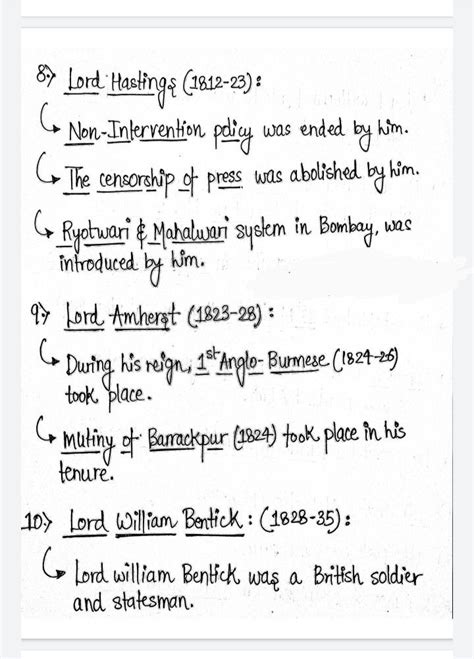 8.> Lord Hastings (1812-23):
↳ Non-Intervention policy was ended by him.
↳ The censorship of press was abolished by him.
↳ Ryotwari & Mahalwari system in Bombay, was
introduced by him.
9.> Lord Amherst (1823-28):
↳ During his reign, 1st Anglo-Burmese (1824-26)
took place.
↳ Mutiny of Barrackpur (1824) took place in his
tenure.
10.> Lord William Bentick: (1828-35):
↳ Lord william Bentick was a British soldier
and statesman.